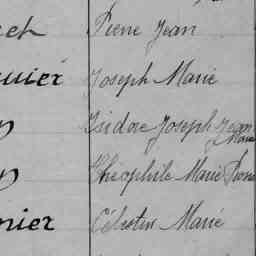 Pierre Jean
Joseph Marie
Isidore Joseph Jean Marie
Théophile Marie
nier Célestin Marie